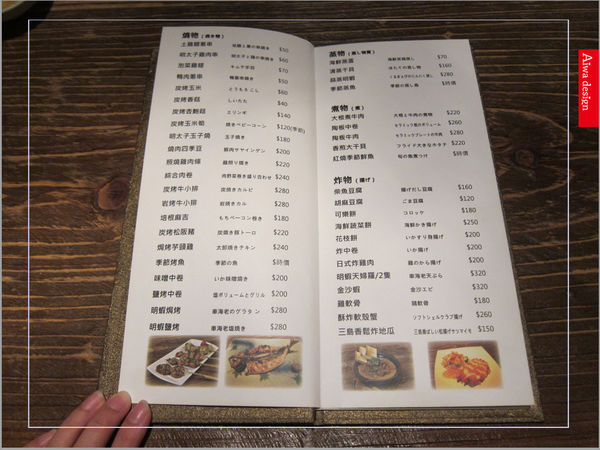 燒物（焼き物）
土雞腿蔥串 $50
明太子雞肉串 $60
泡菜雞腿 キムチ $70
鴨肉蔥串 $50
炭烤玉米 とうもろこし $60
炭烤香菇 しいたけ $40
炭烤杏鮑菇 エリンギ $140
炭烤玉米筍 焼きベビーコーン $120(季節)
明太子玉子燒 玉子焼き $180
燒肉四季豆 $200
照燒雞肉條 $220
綜合肉卷 $240
炭烤牛小排 炭焼きカルビ $280
岩烤牛小排 岩焼きカル $280
培根麻吉 もちベーコン巻き $180
炭烤松阪豬 炭焼き豚トーロ $220
焗烤芋頭雞 太郎焼きチキン $240
季節烤魚 季節の魚 $時價
味噌中卷 いか味噌焼き $200
鹽烤中卷 塩ボリュームとグリル $200
明蝦焗烤 車海老のグラタン $280
明蝦鹽烤 車海老塩焼き $280
蒸物（蒸し物質）
海鮮蒸蛋 $70
清蒸干貝 ほたての蒸し物 $160
蒜蒸明蝦 $280
季節蒸魚 季節の蒸し魚 $時價
煮物（煮）
大根煮牛肉 大根と牛肉の煮物 $220
陶板中卷 セラミック製のボリューム $260
陶板牛肉 セラミックプレートの牛肉 $280
香煎大干貝 フライド大きなホタテ $220
紅燒季節鮮魚 旬の魚煮つけ $時價
炸物（揚げ）
柴魚豆腐 揚げだし豆腐 $160
胡麻豆腐 ごま豆腐 $120
可樂餅 コロッケ $180
海鮮蔬菜餅 海鮮かき揚げ $250
花枝餅 いかすり身揚げ $200
炸中卷 いか揚げ $200
日式炸雞肉 雞のから揚げ $200
明蝦天婦羅/2隻 車海老天ぷら $320
金沙蝦 金沙エビ $320
雞軟骨 鶏軟骨 $180
酥炸軟殼蟹 ソフトシェルクラブ揚げ $260
三島香鬆炸地瓜 三島香ばしい松揚げサツマイモ $150
Aiwa design